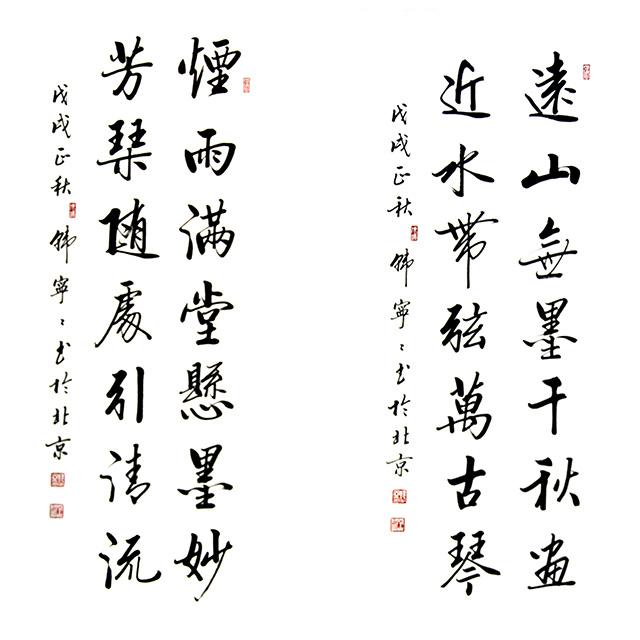 遠山無墨千秋畫
近水帶弦萬古琴
戊戌正秋 韓寧〻书於北京
煙雨滿堂懸墨妙
芳琹随處引清流
戊戌正秋 韓寧〻书於北京